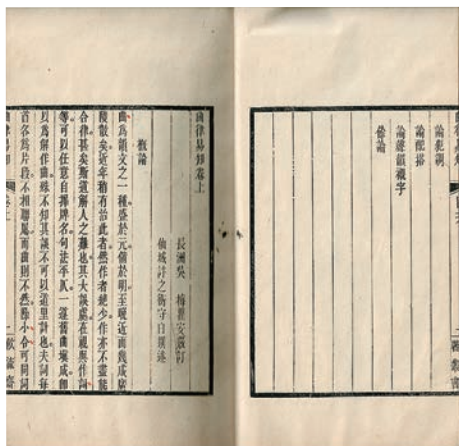 論犯調
論配搭
論襯字
餘論
曲律易知卷上
長洲吳 梅瞿安訂
仙城許之衡守白撰述
概論
曲為韻文之一種盛於元備於明至晚近而幾成廣
陵散矣近年稍有治此者然作者絕少作亦不盡能
合律甚矣斯道解人之難也其大誤處在視與作詞
等可以任意自擇牌名句法平仄一遵舊曲填成即
以為解作曲殊不知其誤不可以道里計也夫詞每
首各為片段不相聯屬而曲則不然除小令可同詞
曲律易知 卷上 一 飲流齋